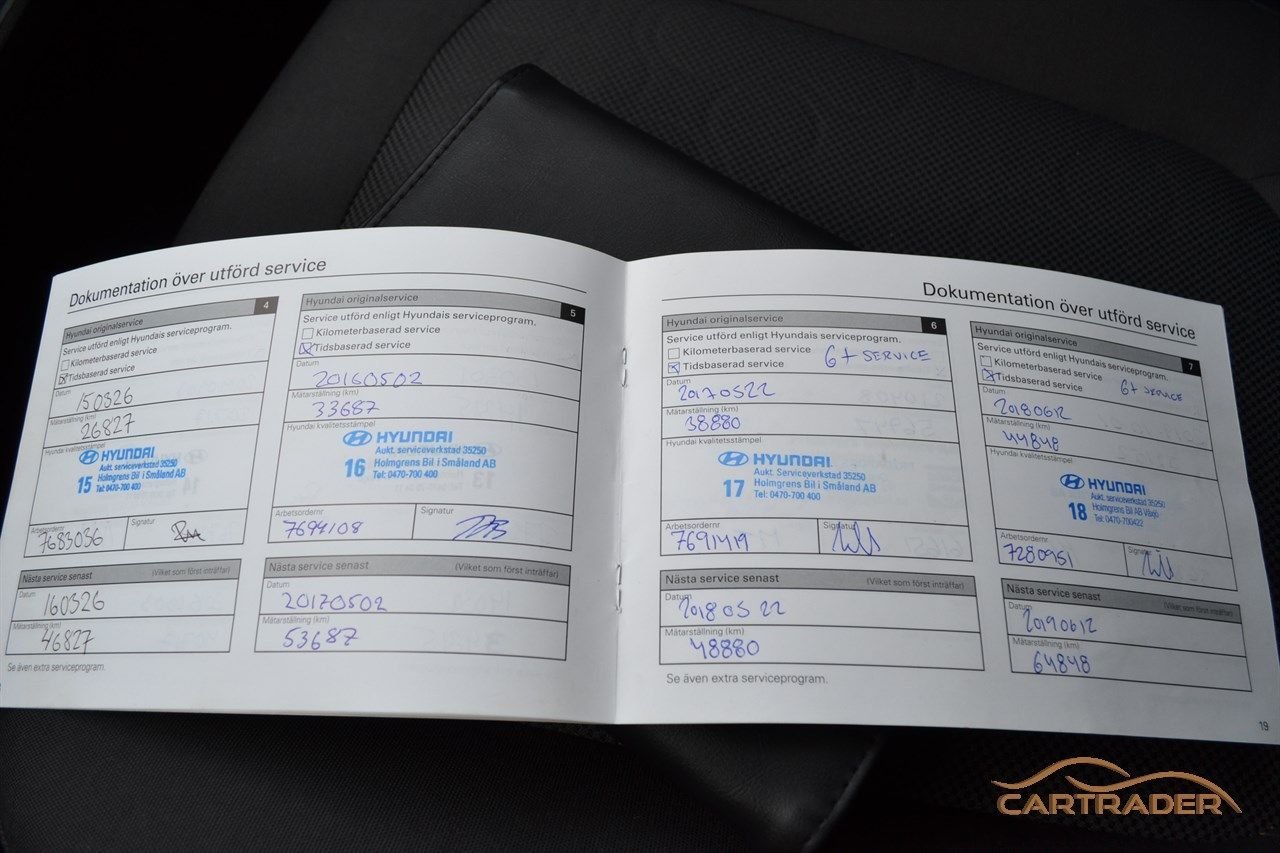 Dokumentation över utförd service
Hyundai originalservice 4
Service utförd enligt Hyundais serviceprogram.
Kilometerbaserad service
Tidsbaserad service
Datum
150326
Mätarställning (km)
26827
Hyundai kvalitetsstämpel
HYUNDAI
Aukt. serviceverkstad 35250
15 Holmgrens Bil i Småland AB
Tel: 0470-700 400
Arbetsordernr
7683036
Signatur
Nästa service senast (Vilket som först inträffar)
Datum
160326
Mätarställning (km)
46827
Se även extra serviceprogram.
Hyundai originalservice 5
Service utförd enligt Hyundais serviceprogram.
Kilometerbaserad service
Tidsbaserad service
Datum
20160502
Mätarställning (km)
33687
Hyundai kvalitetsstämpel
HYUNDAI
Aukt. serviceverkstad 35250
16 Holmgrens Bil i Småland AB
Tel: 0470-700 400
Arbetsordernr
7694108
Signatur
Nästa service senast (Vilket som först inträffar)
Datum
20170502
Mätarställning (km)
53687
Dokumentation över utförd service
Hyundai originalservice 6
Service utförd enligt Hyundais serviceprogram.
Kilometerbaserad service 6+ SERVICE
Tidsbaserad service
Datum
20170522
Mätarställning (km)
38880
Hyundai kvalitetsstämpel
HYUNDAI
Aukt. Serviceverkstad 35250
17 Holmgrens Bil i Småland AB
Tel: 0470-700 400
Arbetsordernr
7691419
Signatur
Nästa service senast (Vilket som först inträffar)
Datum
2018 05 22
Mätarställning (km)
48880
Se även extra serviceprogram.
Hyundai originalservice 7
Service utförd enligt Hyundais serviceprogram.
Kilometerbaserad service
Tidsbaserad service 6+ SERVICE
Datum
20180612
Mätarställning (km)
44848
Hyundai kvalitetsstämpel
HYUNDAI
Aukt. serviceverkstad 35250
18 Holmgrens Bil AB Växjö
Tel: 0470-700422
Arbetsordernr
7280951
Signatur
Nästa service senast (Vilket som först inträffar)
Datum
20190612
Mätarställning (km)
64848
19
CARTRADER